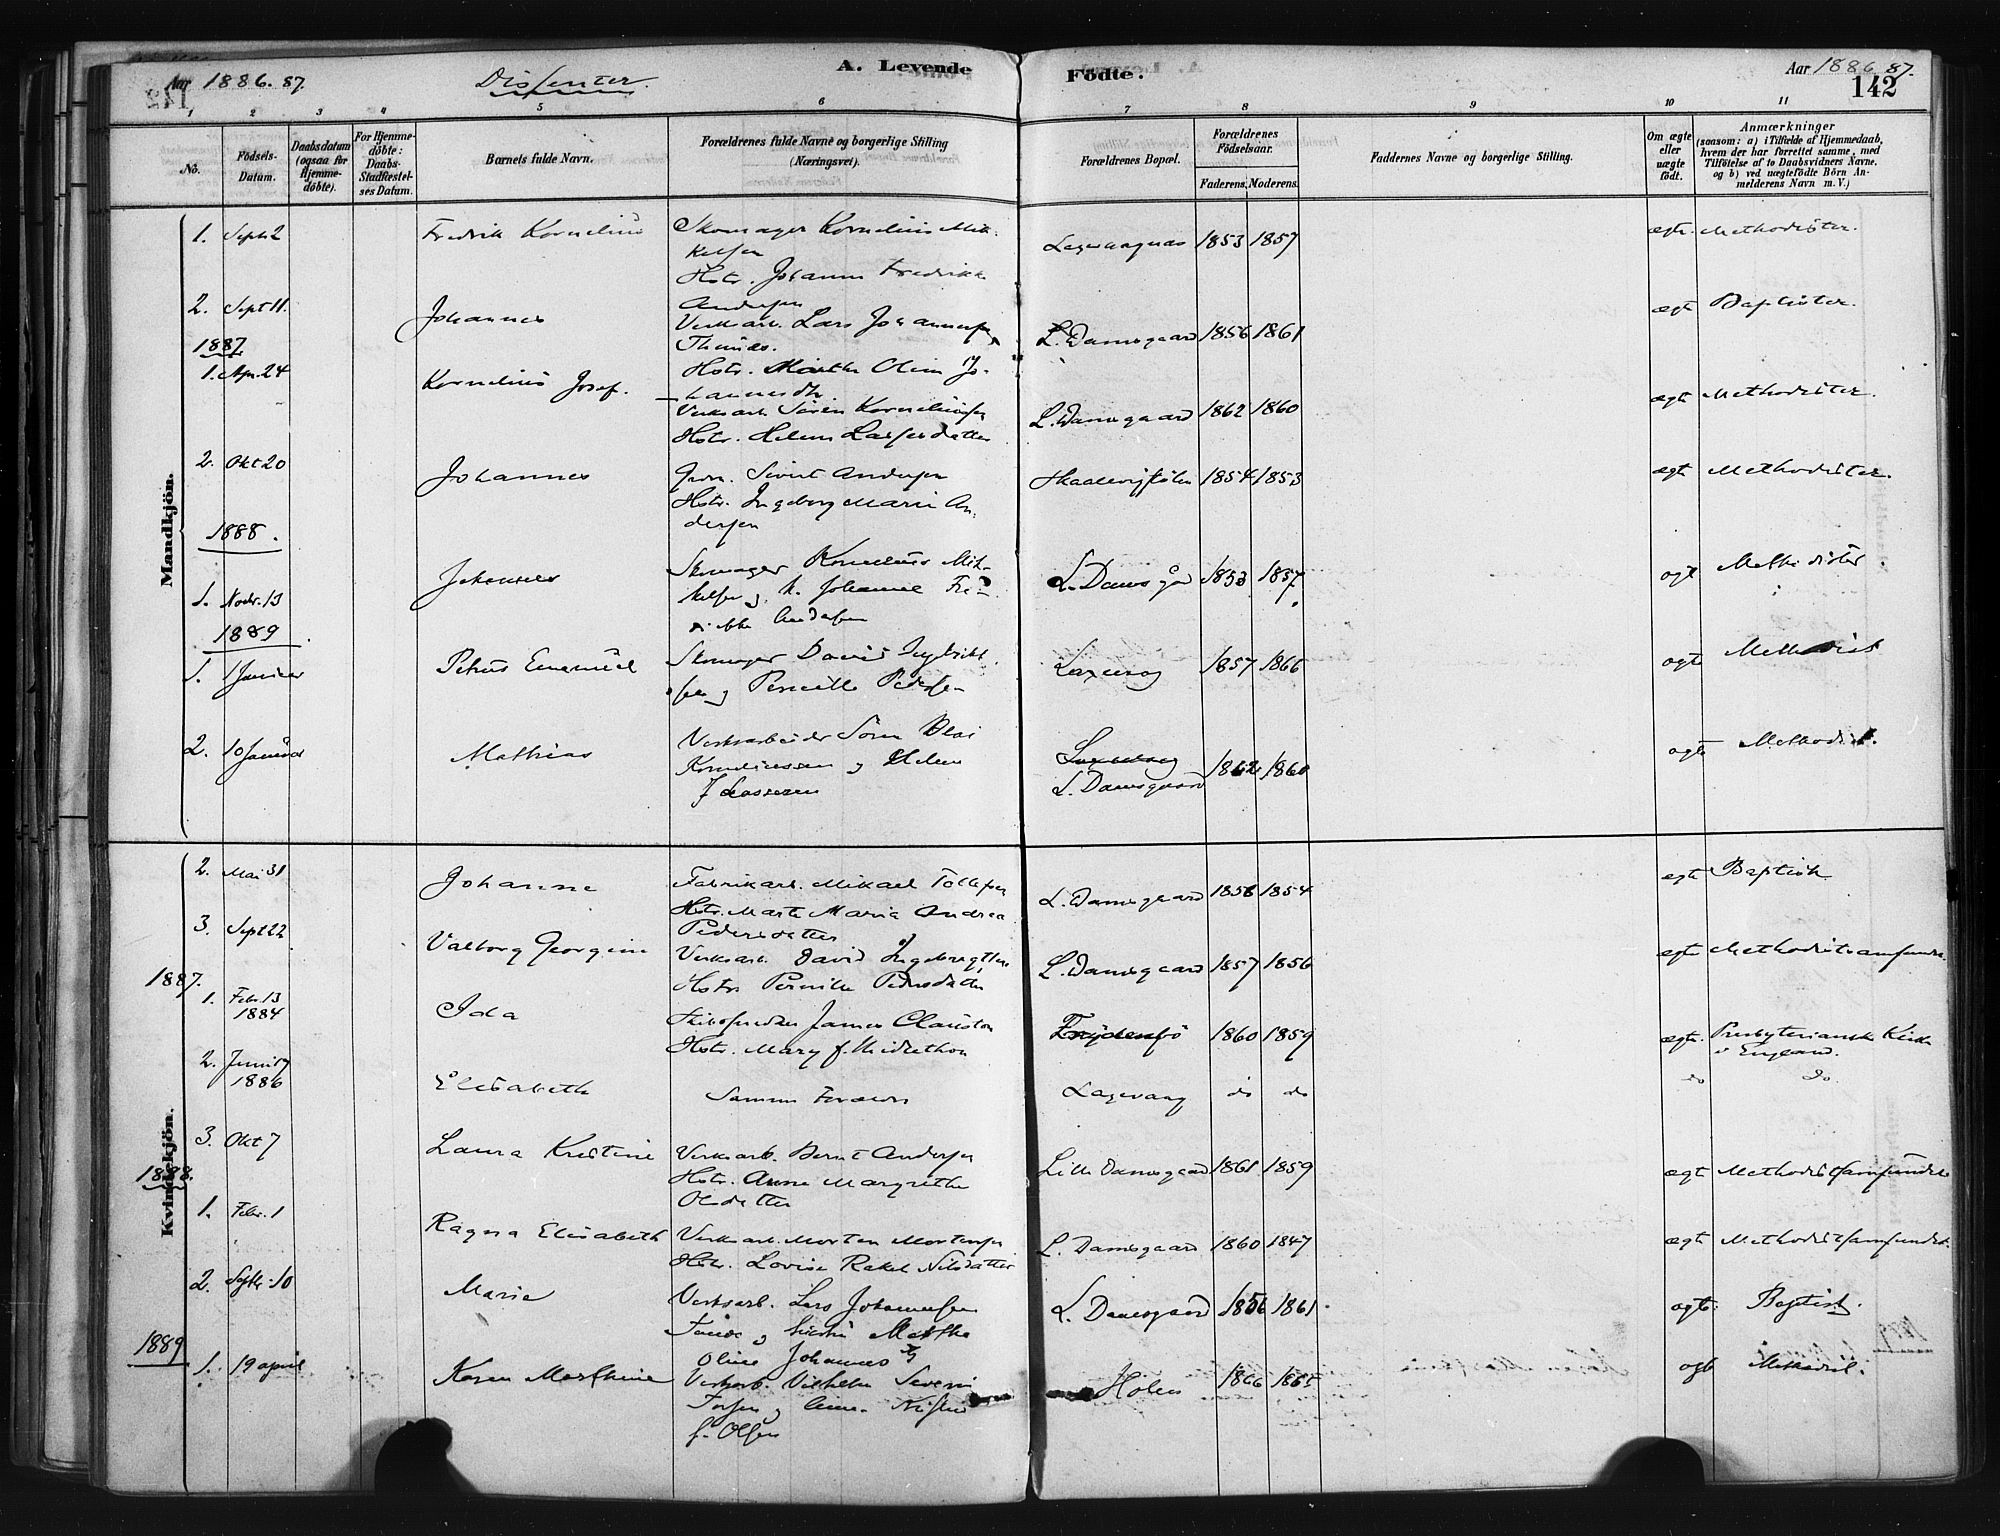 Aar 1886. 87. Dissenter. A. Levende Födte. Aar 1886. 87.
142
1 2 3 4 5 6 7 8 9 10 11
No. Födsels-Datum. Daabsdatum (ogsaa for Hjemme-döbte). For Hjemme-döbte: Daabs-Stadfæstel-ses Datum. Barnets fulde Navn. Forældrenes fulde Navne og borgerlige Stilling (Næringsvei). Forældrenes Bopæl. Forældrenes Födselsaar. Faderens. Moderens. Faddernes Navne og borgerlige Stilling. Om ægte eller uægte födt. Anmærkninger (saasom: a) i Tilfælde af Hjemmedaab, hvem der har forrettet samme, med Tilföielse af to Daabsvidners Navne, og b) ved uægtefödte Börn An-melderens Navn m. V.)
Mandkjön.
1. Sept 2 Fredrik Kornelius Skomager Kornelius Mik- 1853 1857 ægte. Methodister.
kelsen
Hstr. Johanne Fredrikke
Andersen
2. Sept 11. Johannes Verksarb. Lars Johannessen L. Damsgaard 1856 1861 ægt Baptister.
1887
Hstr. Marthe Oline Jo-
hannesdtr.
1. Apr. 24 Kornelius Josef. Verksarb. Sören Korneliussen L. Damsgaard 1862 1860 ægt Methodister.
Hstr. Helene Lassesdatter
2. Okt 20 Johannes Sivert Andersen 1854 1853 ægt Methodister.
Hstr. Ingeborg Marie An-
dersen
1888.
1. Novbr. 13 Johannes Skomager Kornelius Mik- L. Damsgård 1853 1857 ægt Methodister
kelsen og h. Johanne Fre-
rikke Andersen
1889
1. 1 Januar Petrus Emanuel Skomager David Ingebrikt- Laxevaag 1857 1866 ægte Methodist
sen og Pernille Pedersen
2. 10 Januar Mathias Verksarbeider Sören Olai Laxevaag 1862 1860 ægte Methodist.
Korneliussen og Helene L. Damsgaard
f Lassesen
Kvindekjön.
2. Mai 31 Johanne Fabrikarb. Mikael Tollefsen L. Damsgaard 1858 1854 ægte Baptist.
Hstr. Marte Maria Andrea
Pedersdatter
3. Sept 22 Valborg Georgine Verksarb. David Ingebrigtsen L. Damsgaard 1857 1856 ægte Methodistsamfundet.
Hstr Pernille Pedersdatter
1887.
1. Febr. 13 1884 Ida James Clauston 1860 1859 ægte. Presbyterianske Kirke
Hstr. Mary f. i England.
2. Juni 17 1886 Elisabeth Samme Forældre Laxevaag do do do do.
3. Okt 7 Laura Kristine Verksarb. Bernt Andersen Lille Damsgaard 1861 1859 ægt Methodistsamfundet
Hstr. Anne Margrethe
Olsdatter
1888.
1. Febr. 1 Ragna Elisabeth Verksarb. Morten Mortensen L. Damsgaard 1860 1847 ægt Methodistsamfundet.
Hstr. Lovise Rakel Nilsdatter
2. Septbr. 10 Marie Verksarb. Lars Johannessen L. Damsgaard 1856 1861. ægte. Baptist.
og hustru Marthe
Oline Johannes
1889
1. 19 april Karen Marthine Verksarb. Vilhelm Severin Holen 1866 1865 ægte Methodist.
og Anne
f. Olsen